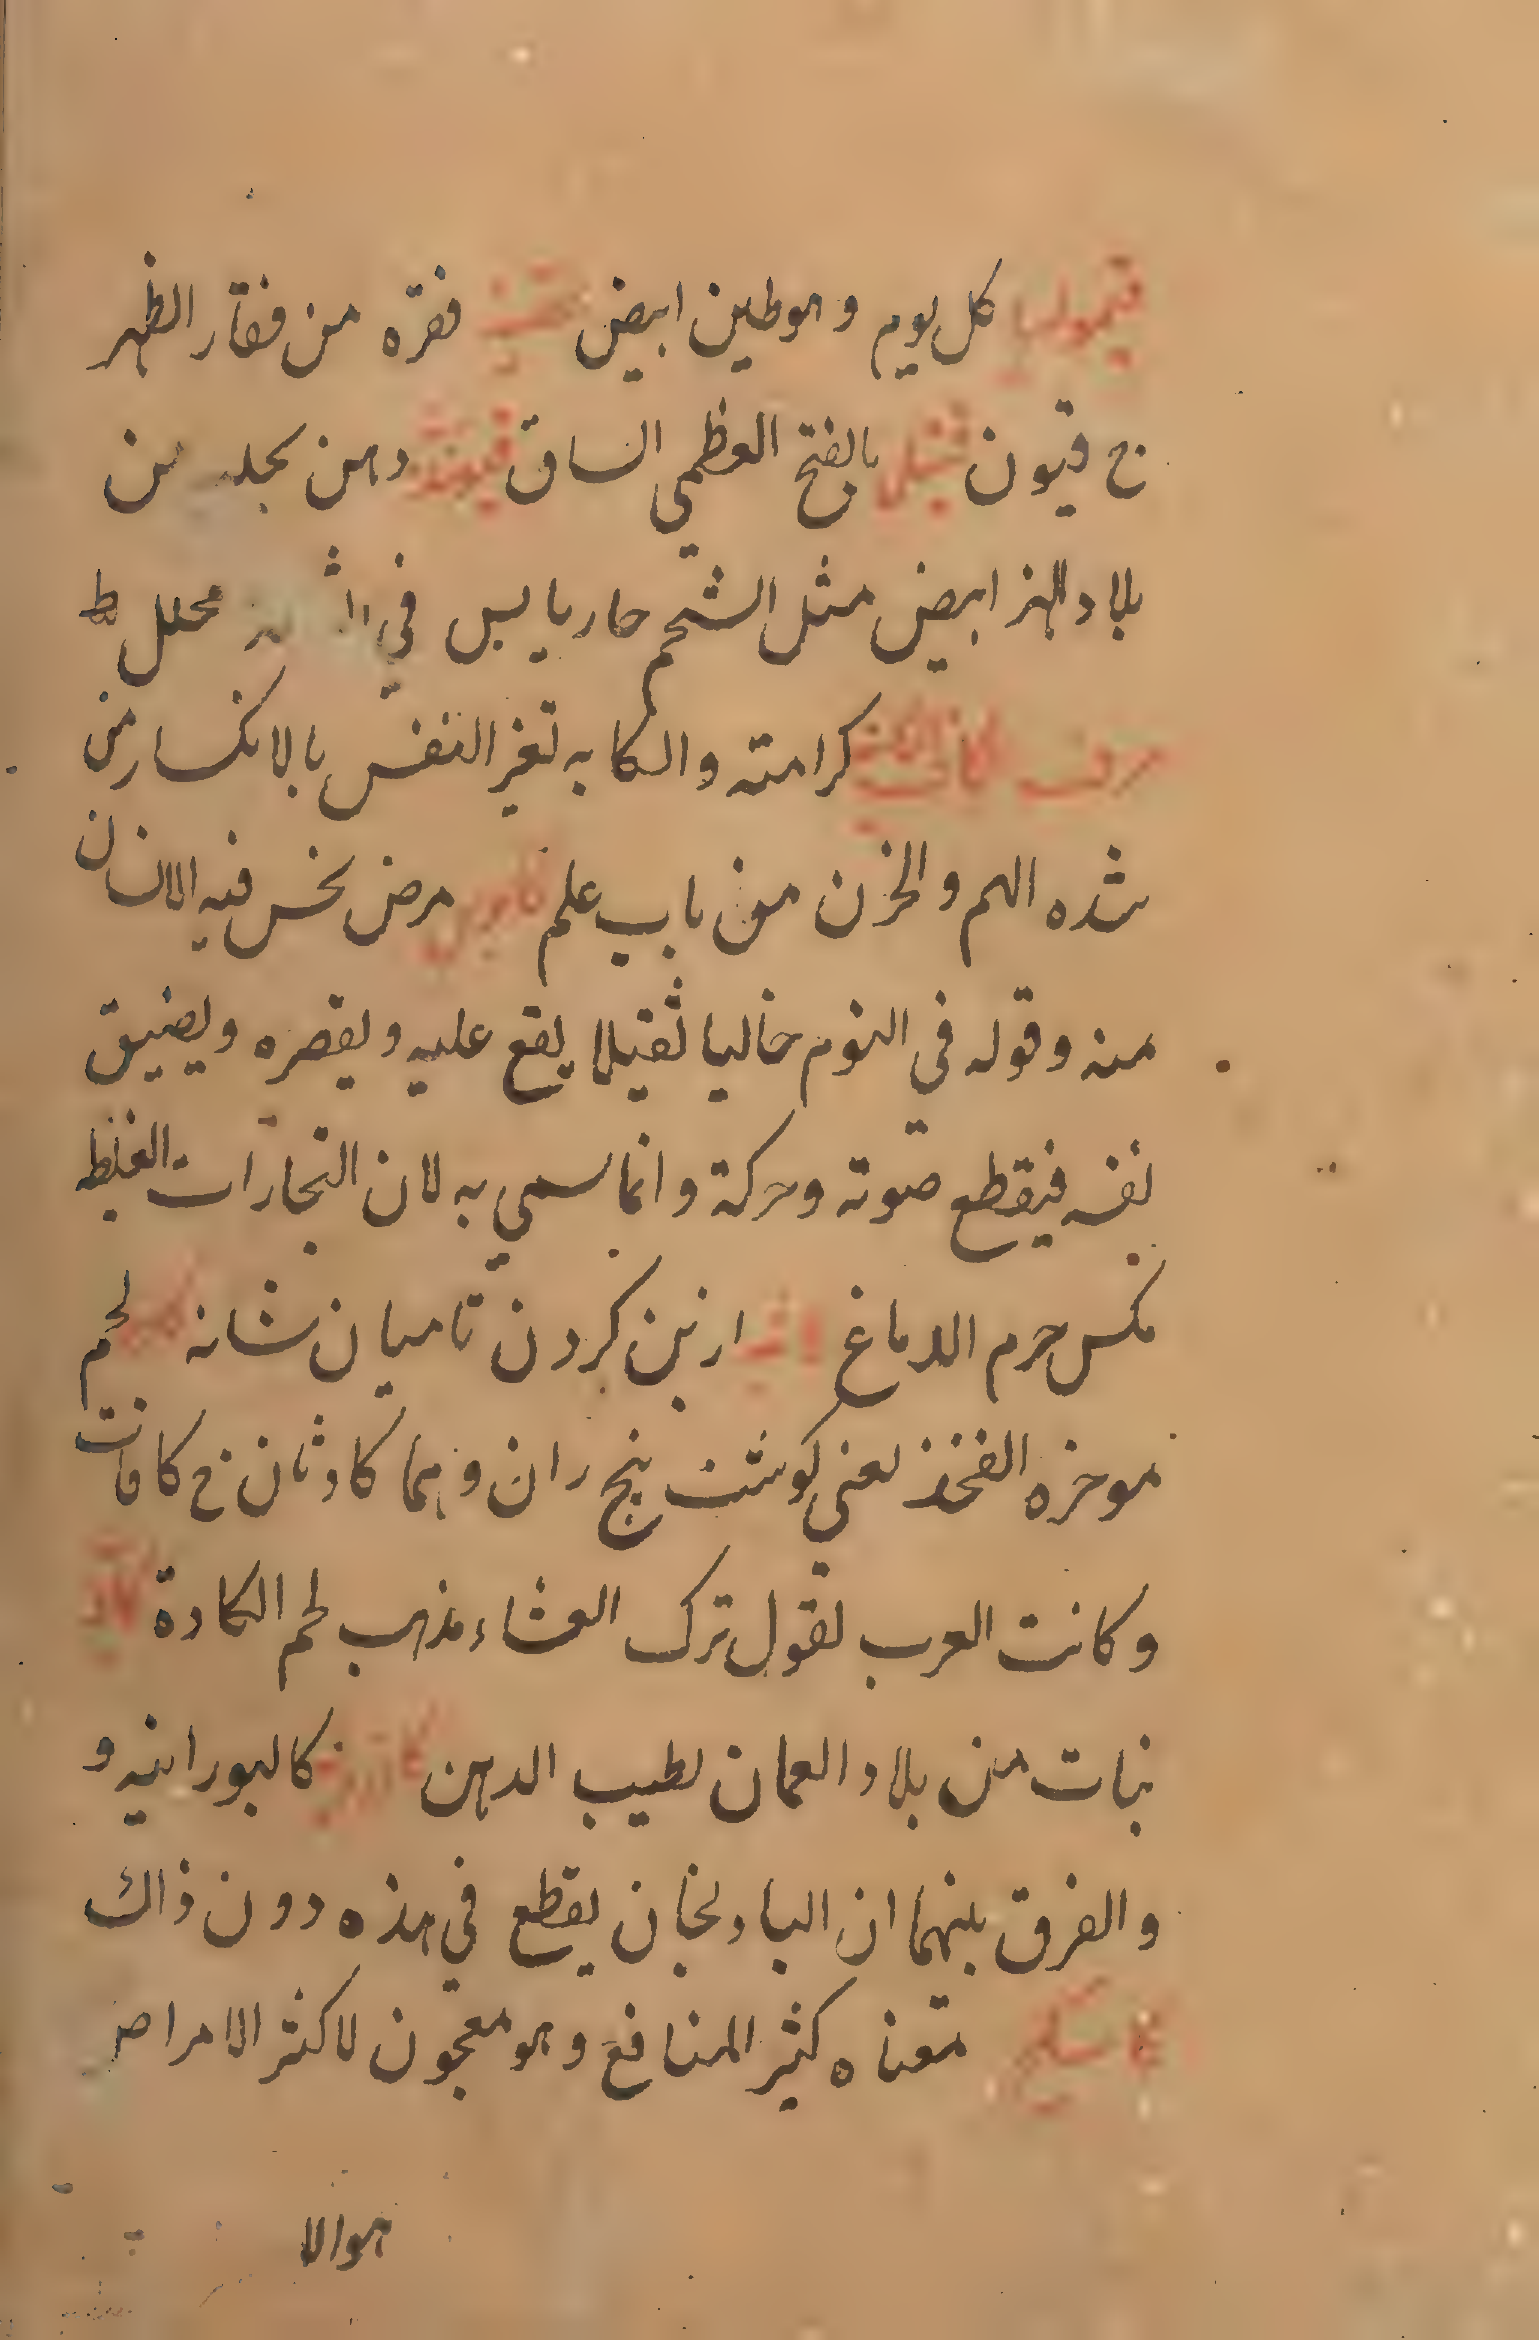 قیمولیا كل یوم وهوطین ابیض فقره من فقار الظهر
ج قیون بالفتح العظمی الساق دهن یجلب من
بلاد الهز ابیض مثل الشحم حار یابس فی محلل ط
حرف الكاف كرامته والكابه تغیر النفس بالانكسار من
شده الهم والحزن من باب علم كابوس مرض یحس فیه الانسان
منه وقوله فی النوم خالیا ثقیلا یقع علیه ویقصره ویضیق
نفسه فیقطع صوته وحركة وانما سمی به لان البخارات الغلظه
مكبس جرم الدماغ از بن كردن تا میان شانه لحم
موخره الفخذ یعنی كوشت بنج ران وهما كادثان ج كافات
وكانت العرب لقول ترك العشاء مذهب لحم الكادة كاد
نبات من بلاد العمان لطیب الدهن كالبورانیه و
والفرق بینهما ان البادنجان یقطع فی هذه دون ذاك
معناه كثیر المنافع وهو معجون لاكثر الامراض
هوالا